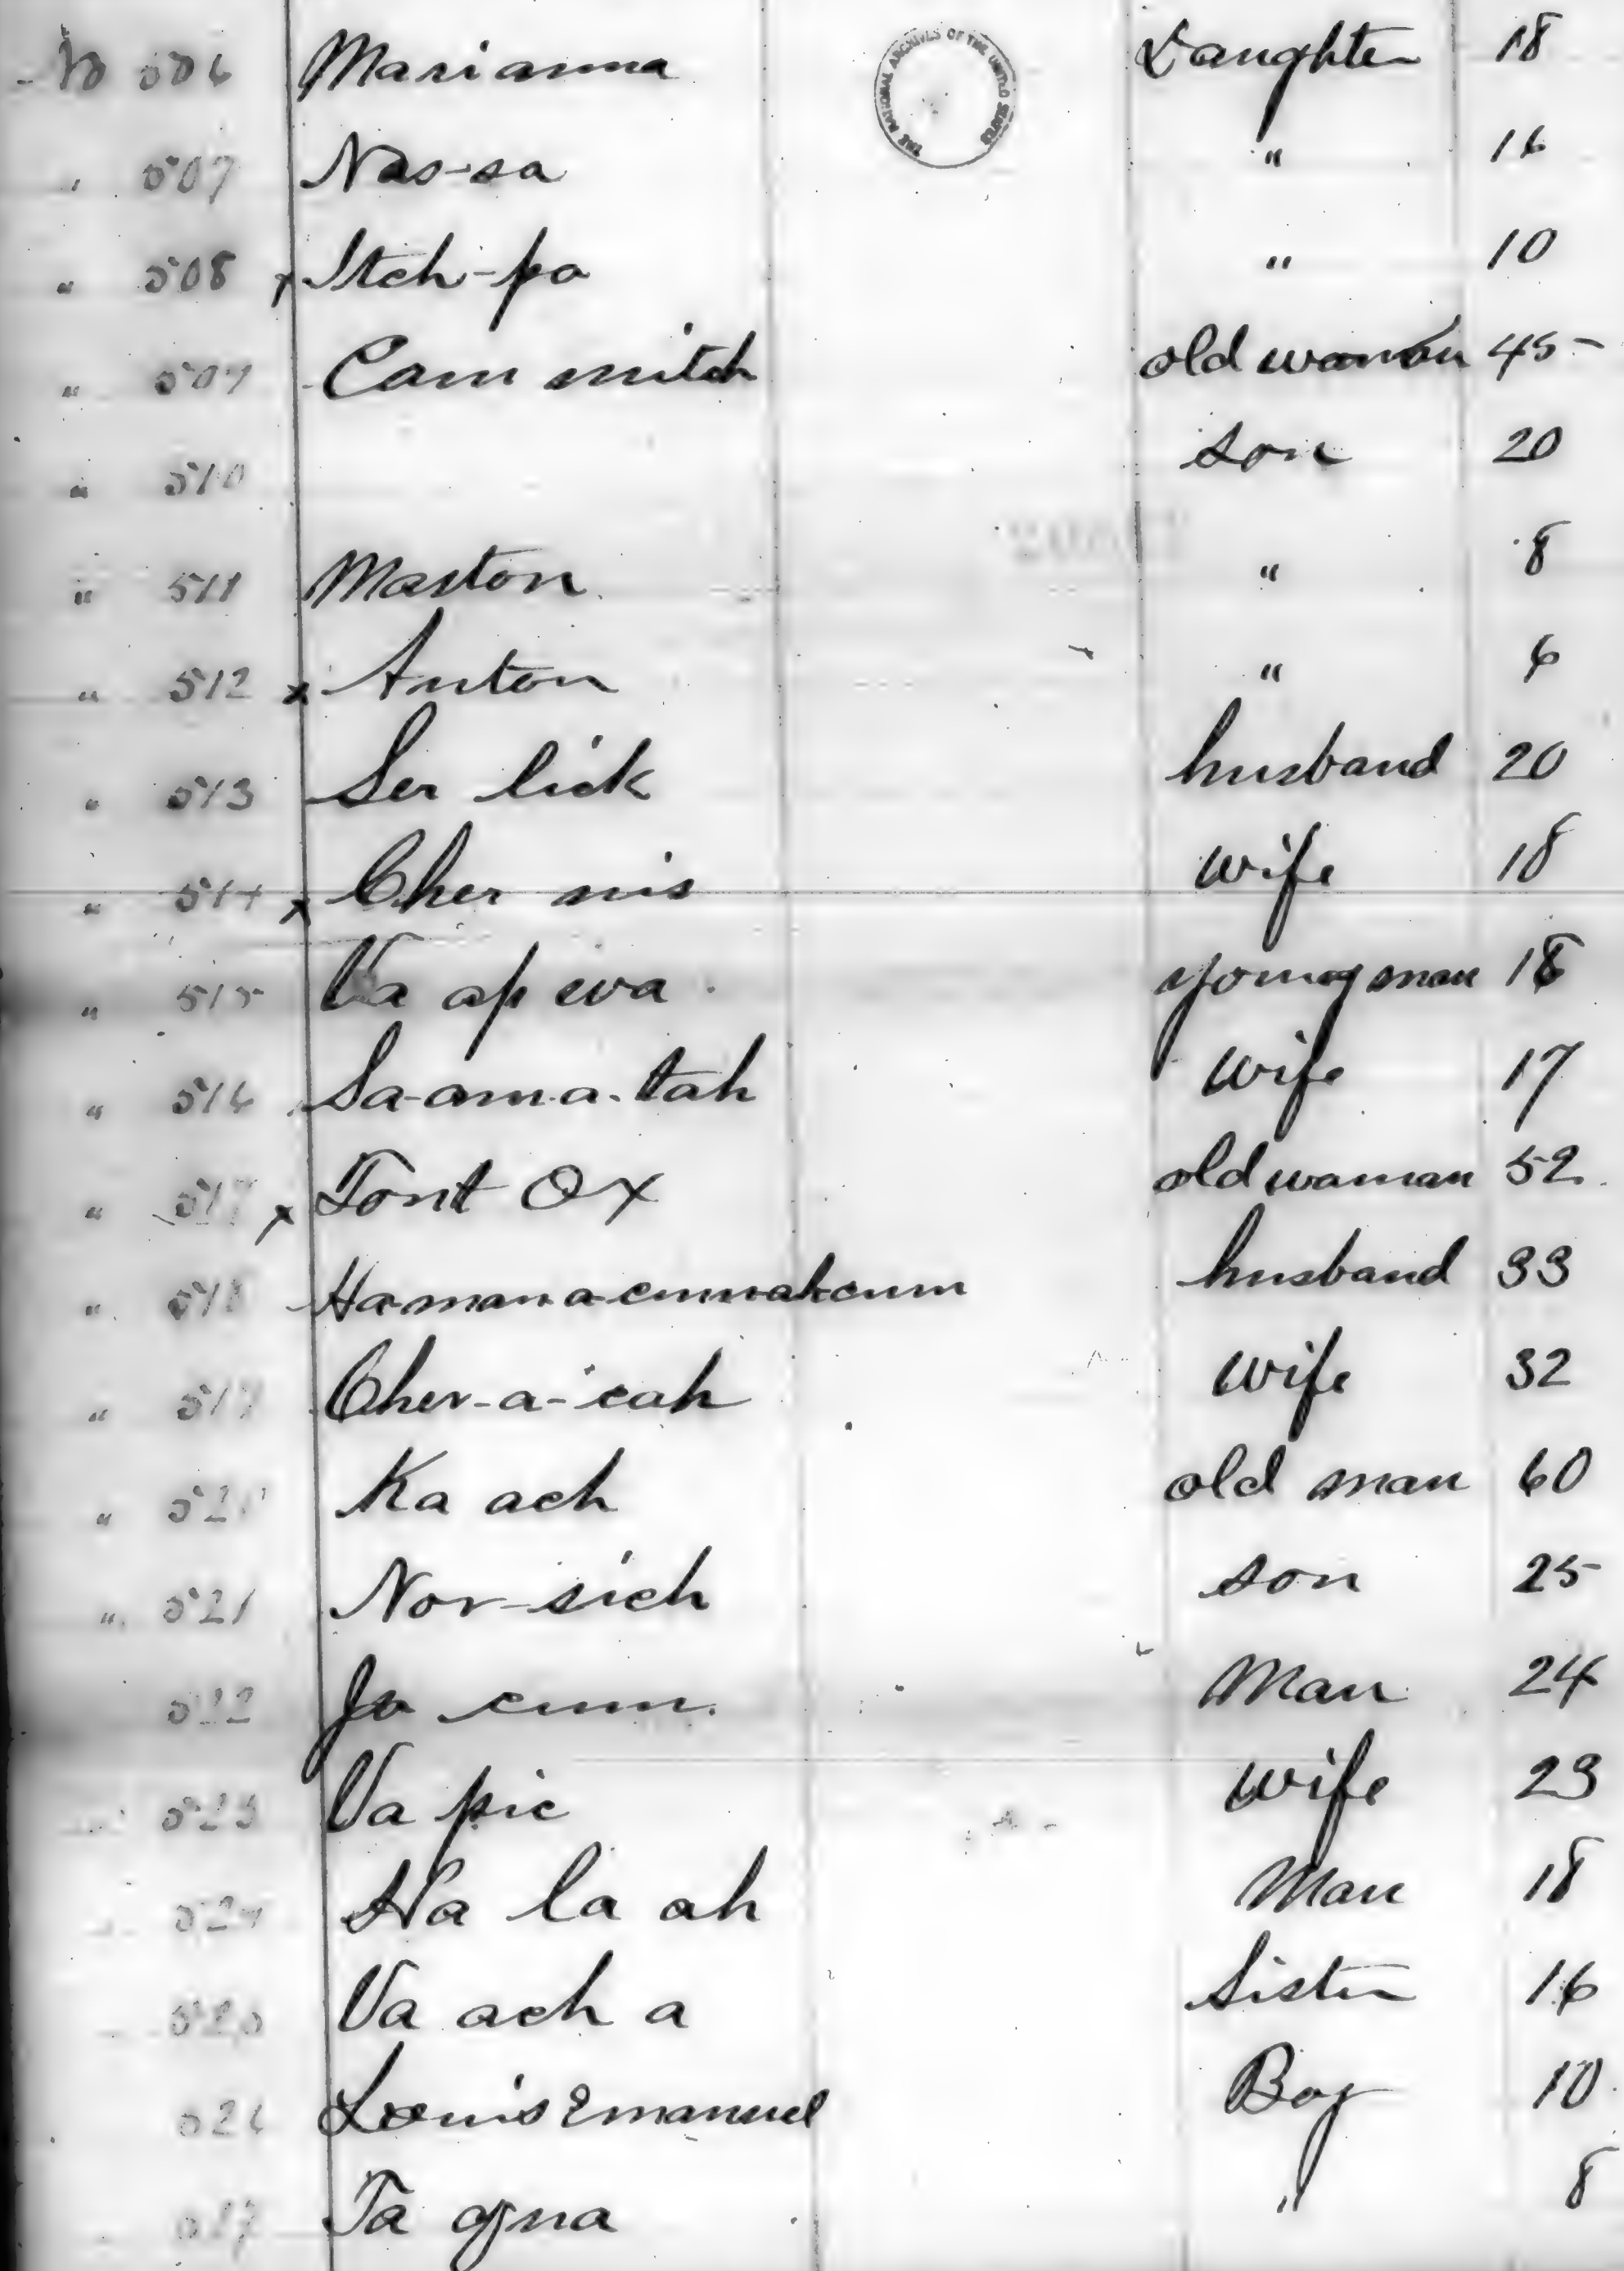 No 506 Marianna Daughter 18
THE NATIONAL ARCHIVES OF THE UNITED STATES
" 507 Nas-sa " 16
" 508 x Itch-pa " 10
" 509 Cam mitch old woman 45
" 510 son 20
" 511 Marton " 8
" 512 x Anton " 6
" 513 Ser lick husband 20
" 514 x Cher nis wife 18
" 515 Va ap eva young man 18
" 516 Sa-am-a-tah wife 17
" 517 x Tont Ox old woman 52
" 518 husband 33
" 519 Cher-a-cah wife 32
" 520 Ka ach old man 60
" 521 Nor-sich son 25
522 Ja cum Man 24
523 Va pic wife 23
524 Na la ah Man 18
525 Va ach a Sister 16
526 Louis Emanuel Boy 10
527 Ta " 8